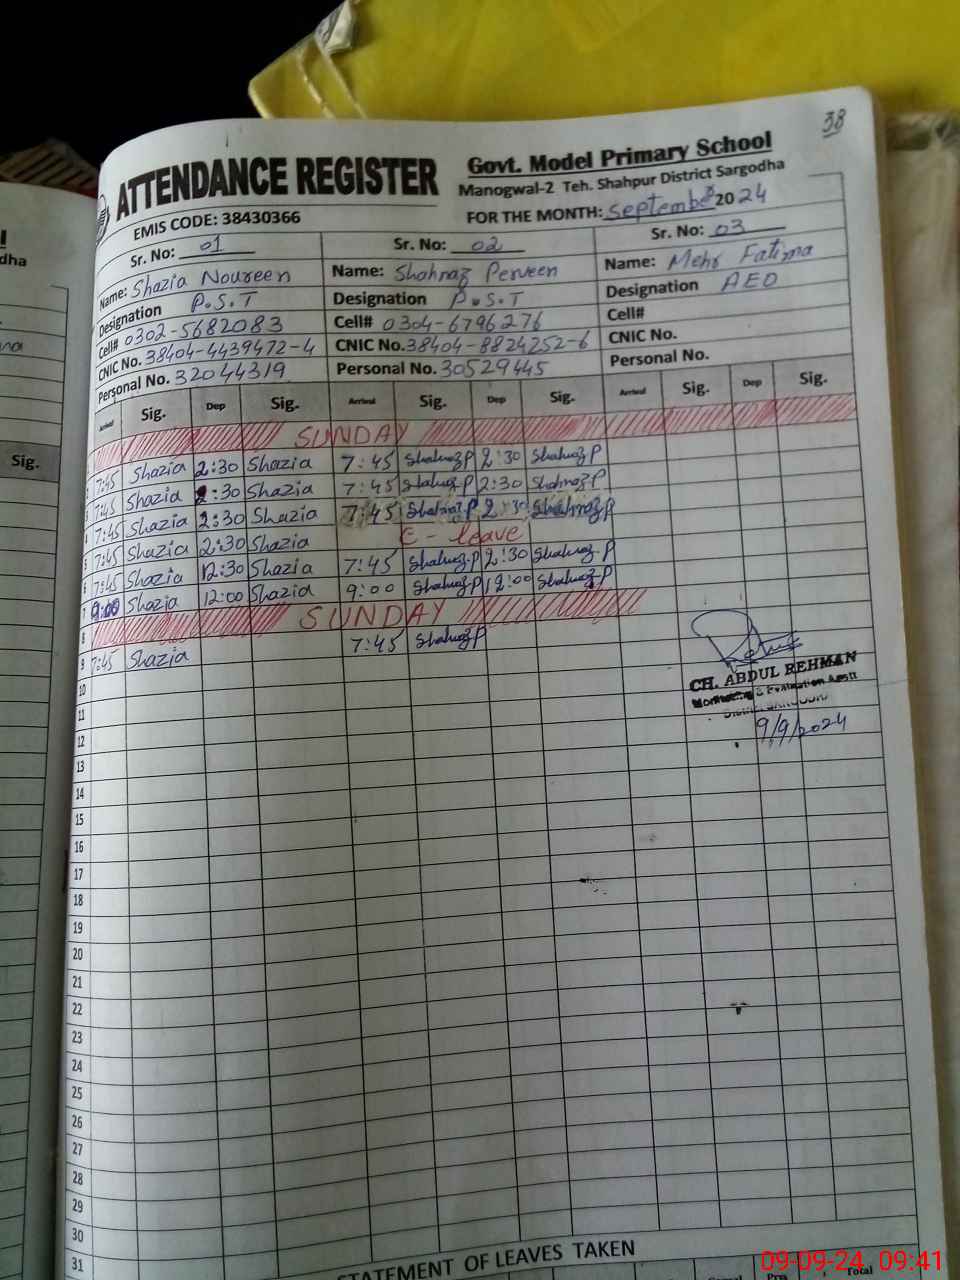 38
ATTENDANCE REGISTER
Govt. Model Primary School
Manogwal-2 Teh. Shahpur District Sargodha
EMIS CODE: 38430366
FOR THE MONTH: September 2024
Sr. No: 01 Sr. No: 02 Sr. No: 03
Name: Shazia Noureen Name: Shahnaz Perveen Name: Mehr Fatima
Designation P.S.T Designation P.S.T Designation AEO
Cell# 0302-5682083 Cell# 0304-6796276 Cell#
CNIC No. 38404-4439472-4 CNIC No. 38404-8824252-6 CNIC No.
Personal No. 32044319 Personal No. 30529445 Personal No.
Arrival Sig. Dep Sig. Arrival Sig. Dep Sig. Arrival Sig. Dep Sig.
SUNDAY
7:45 Shazia 2:30 Shazia 7:45 Shahnaz P 2:30 Shahnaz P
3 7:45 Shazia 2:30 Shazia 7:45 Shahnaz P 2:30 Shahnaz P
4 7:45 Shazia 2:30 Shazia 7:45 Shahnaz P 2:30 Shahnaz P
5 7:45 Shazia 2:30 Shazia C - leave
6 7:45 Shazia 12:30 Shazia 7:45 Shahnaz P 2:30 Shahnaz P
7 9:00 Shazia 12:00 Shazia 9:00 Shahnaz P 12:00 Shahnaz P
8 SUNDAY
9 7:45 Shazia 7:45 Shahnaz P
10
CH. ABDUL REHMAN
Monitoring & Evaluation Asstt
11
9/9/2024
12
13
14
15
16
17
18
19
20
21
22
23
24
25
26
27
28
29
30
31
STATEMENT OF LEAVES TAKEN
Total
dha
Sig.
09-09-24, 09:41